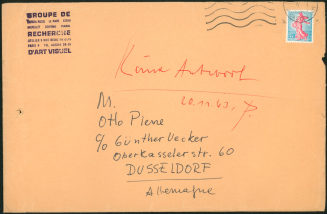 GROUPE DE
RECHERCHE
D'ART VISUEL
Keine Antwort
20.11.63.
M.
Otto Piene
c/o Günther Uecker
Oberkasseler str. 60
DUSSELDORF
Allemagne